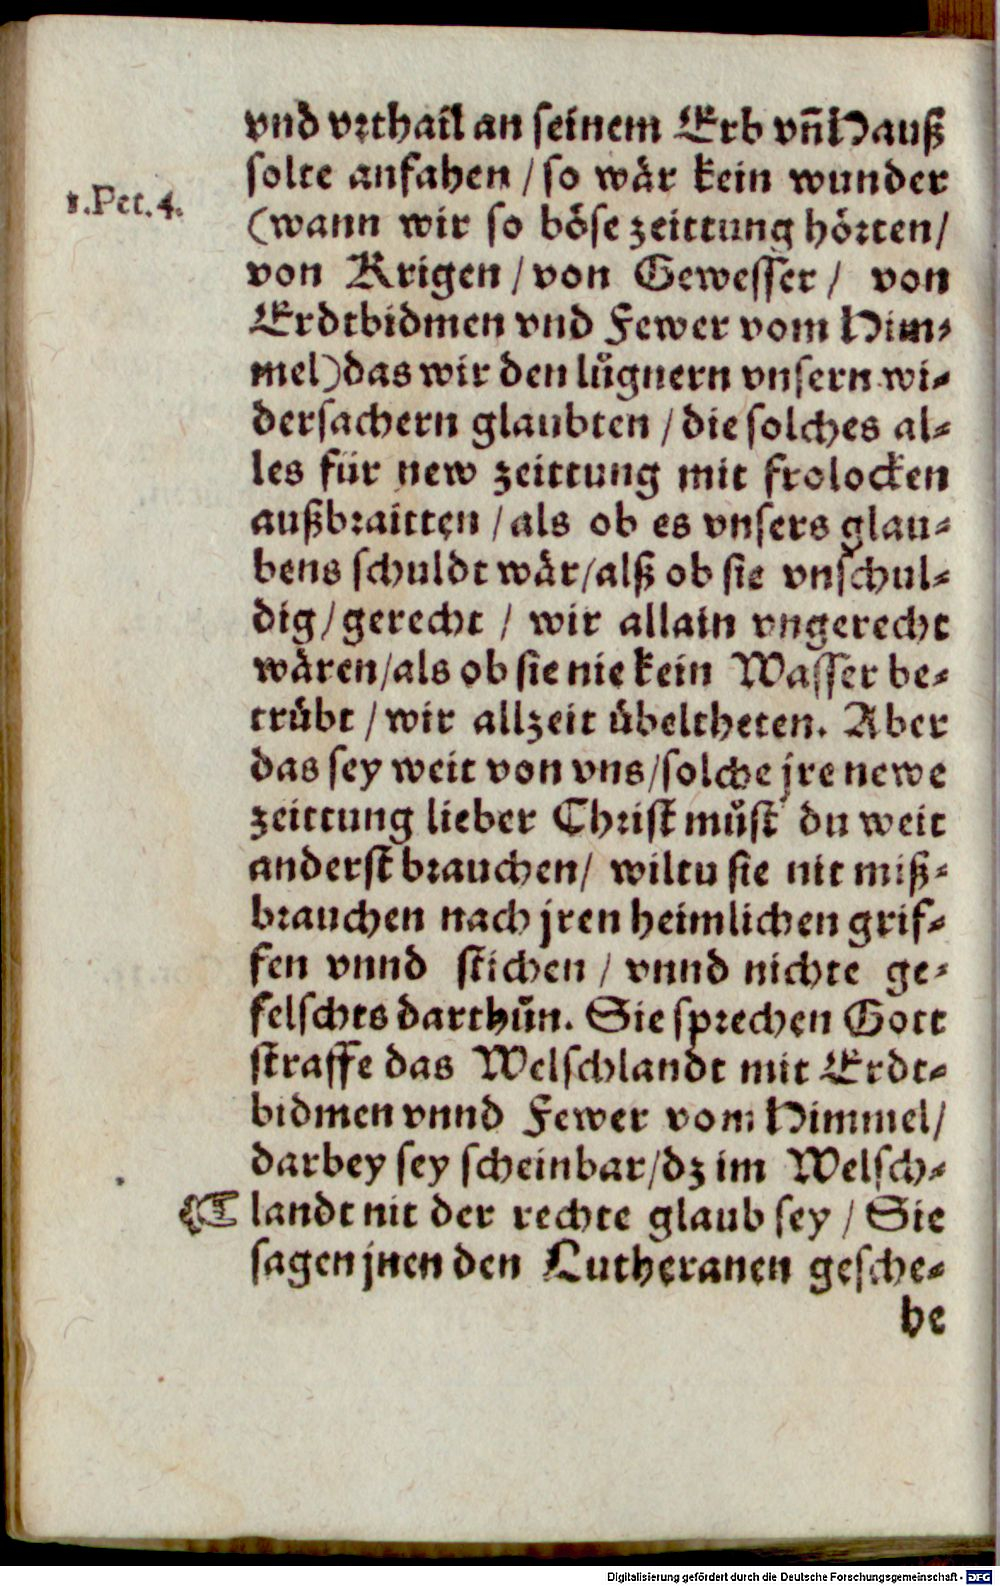 vnd vrthail an seinem Erb vñ Hauß
solte anfahen / so wär kein wunder
1. Pet. 4.
(wann wir so böse zeittung hörten/
von Krigen / von Gewesser / von
Erdtbidmen vnd Fewer vom Him-
mel) das wir den lůgnern vnsern wi-
dersachern glaubten / die solches al-
les für new zeittung mit frolocken
außbraitten / als ob es vnsers glau-
bens schuldt wär / alß ob sie vnschul-
dig / gerecht / wir allain vngerecht
wären / als ob sie nie kein Wasser be-
trübt / wir allzeit übeltheten. Aber
das sey weit von vns / solche jre newe
zeittung lieber Christ můst du weit
anderst brauchen / wiltu sie nit miß-
brauchen nach jren heimlichen grif-
fen vnnd stichen / vnnd nichte ge-
felschts darthůn. Sie sprechen Gott
straffe das Welschlandt mit Erdt-
bidmen vnnd Fewer vom Himmel /
darbey sey scheinbar / dz im Welsch-
landt nit der rechte glaub sey / Sie
sagen jnen den Lutheranen gesche-
he
Digitalisierung gefördert durch die Deutsche Forschungsgemeinschaft - DFG